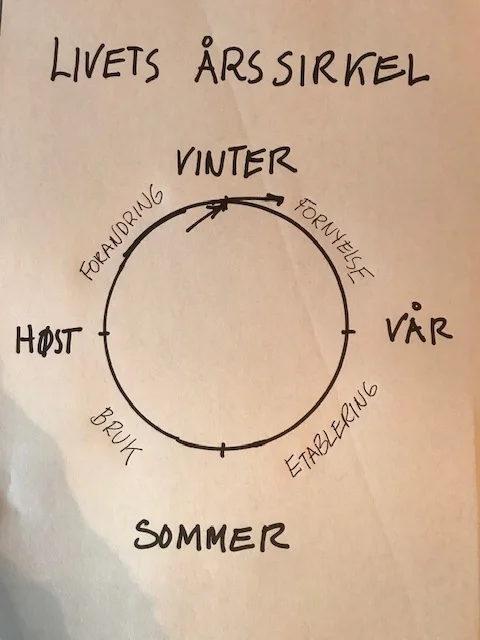 LIVETS ÅRSSIRKEL
VINTER
FORANDRING
FORNYELSE
HØST
VÅR
BRUK
ETABLERING
SOMMER